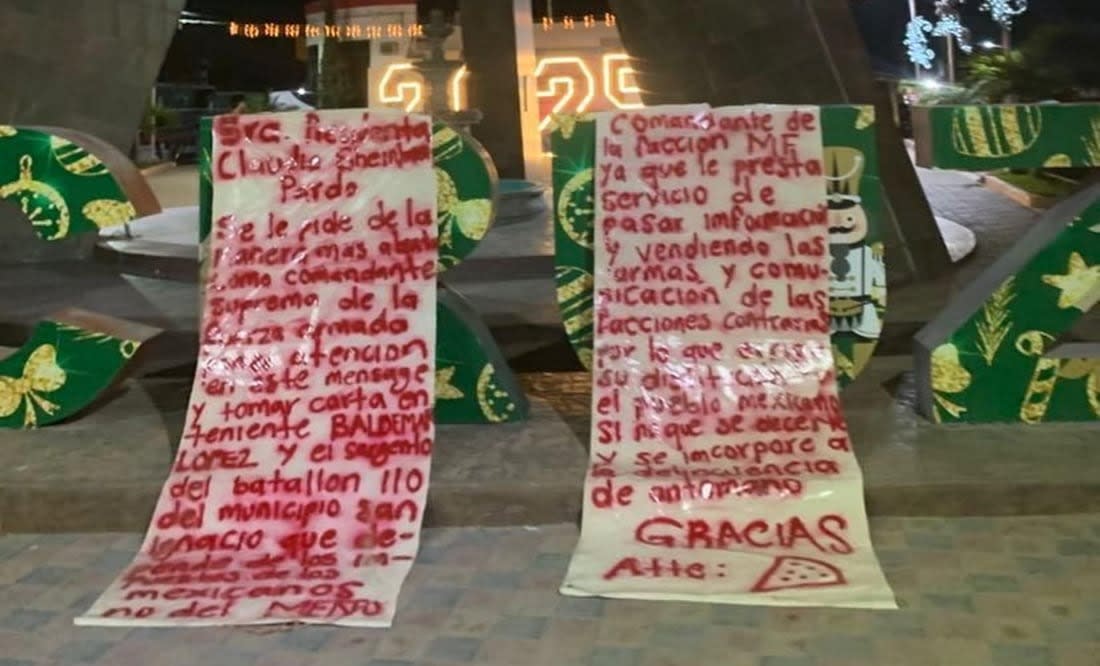 2025
Sra. Presidenta
Claudia Sheinbaum
Pardo
Se le pide de la
manera mas atenta
como comandante
suprema de la
fuerza armada
atencion
en este mensage
y tomar carta en
teniente BALDEMAR
LOPEZ y el sargento
del batallon 110
del municipio San
Ignacio que de-
pende de los im-
puestos de los
mexicanos
no del MENFO
Comandante de
la faccion MF
ya que le presta
servicio de
pasar informacion
y vendiendo las
armas y comu-
nicacion de las
facciones contrarias
por lo que
su
el pueblo mexicano
si no que se
y se incorpore a
la delincuencia
de antemano
GRACIAS
Atte: